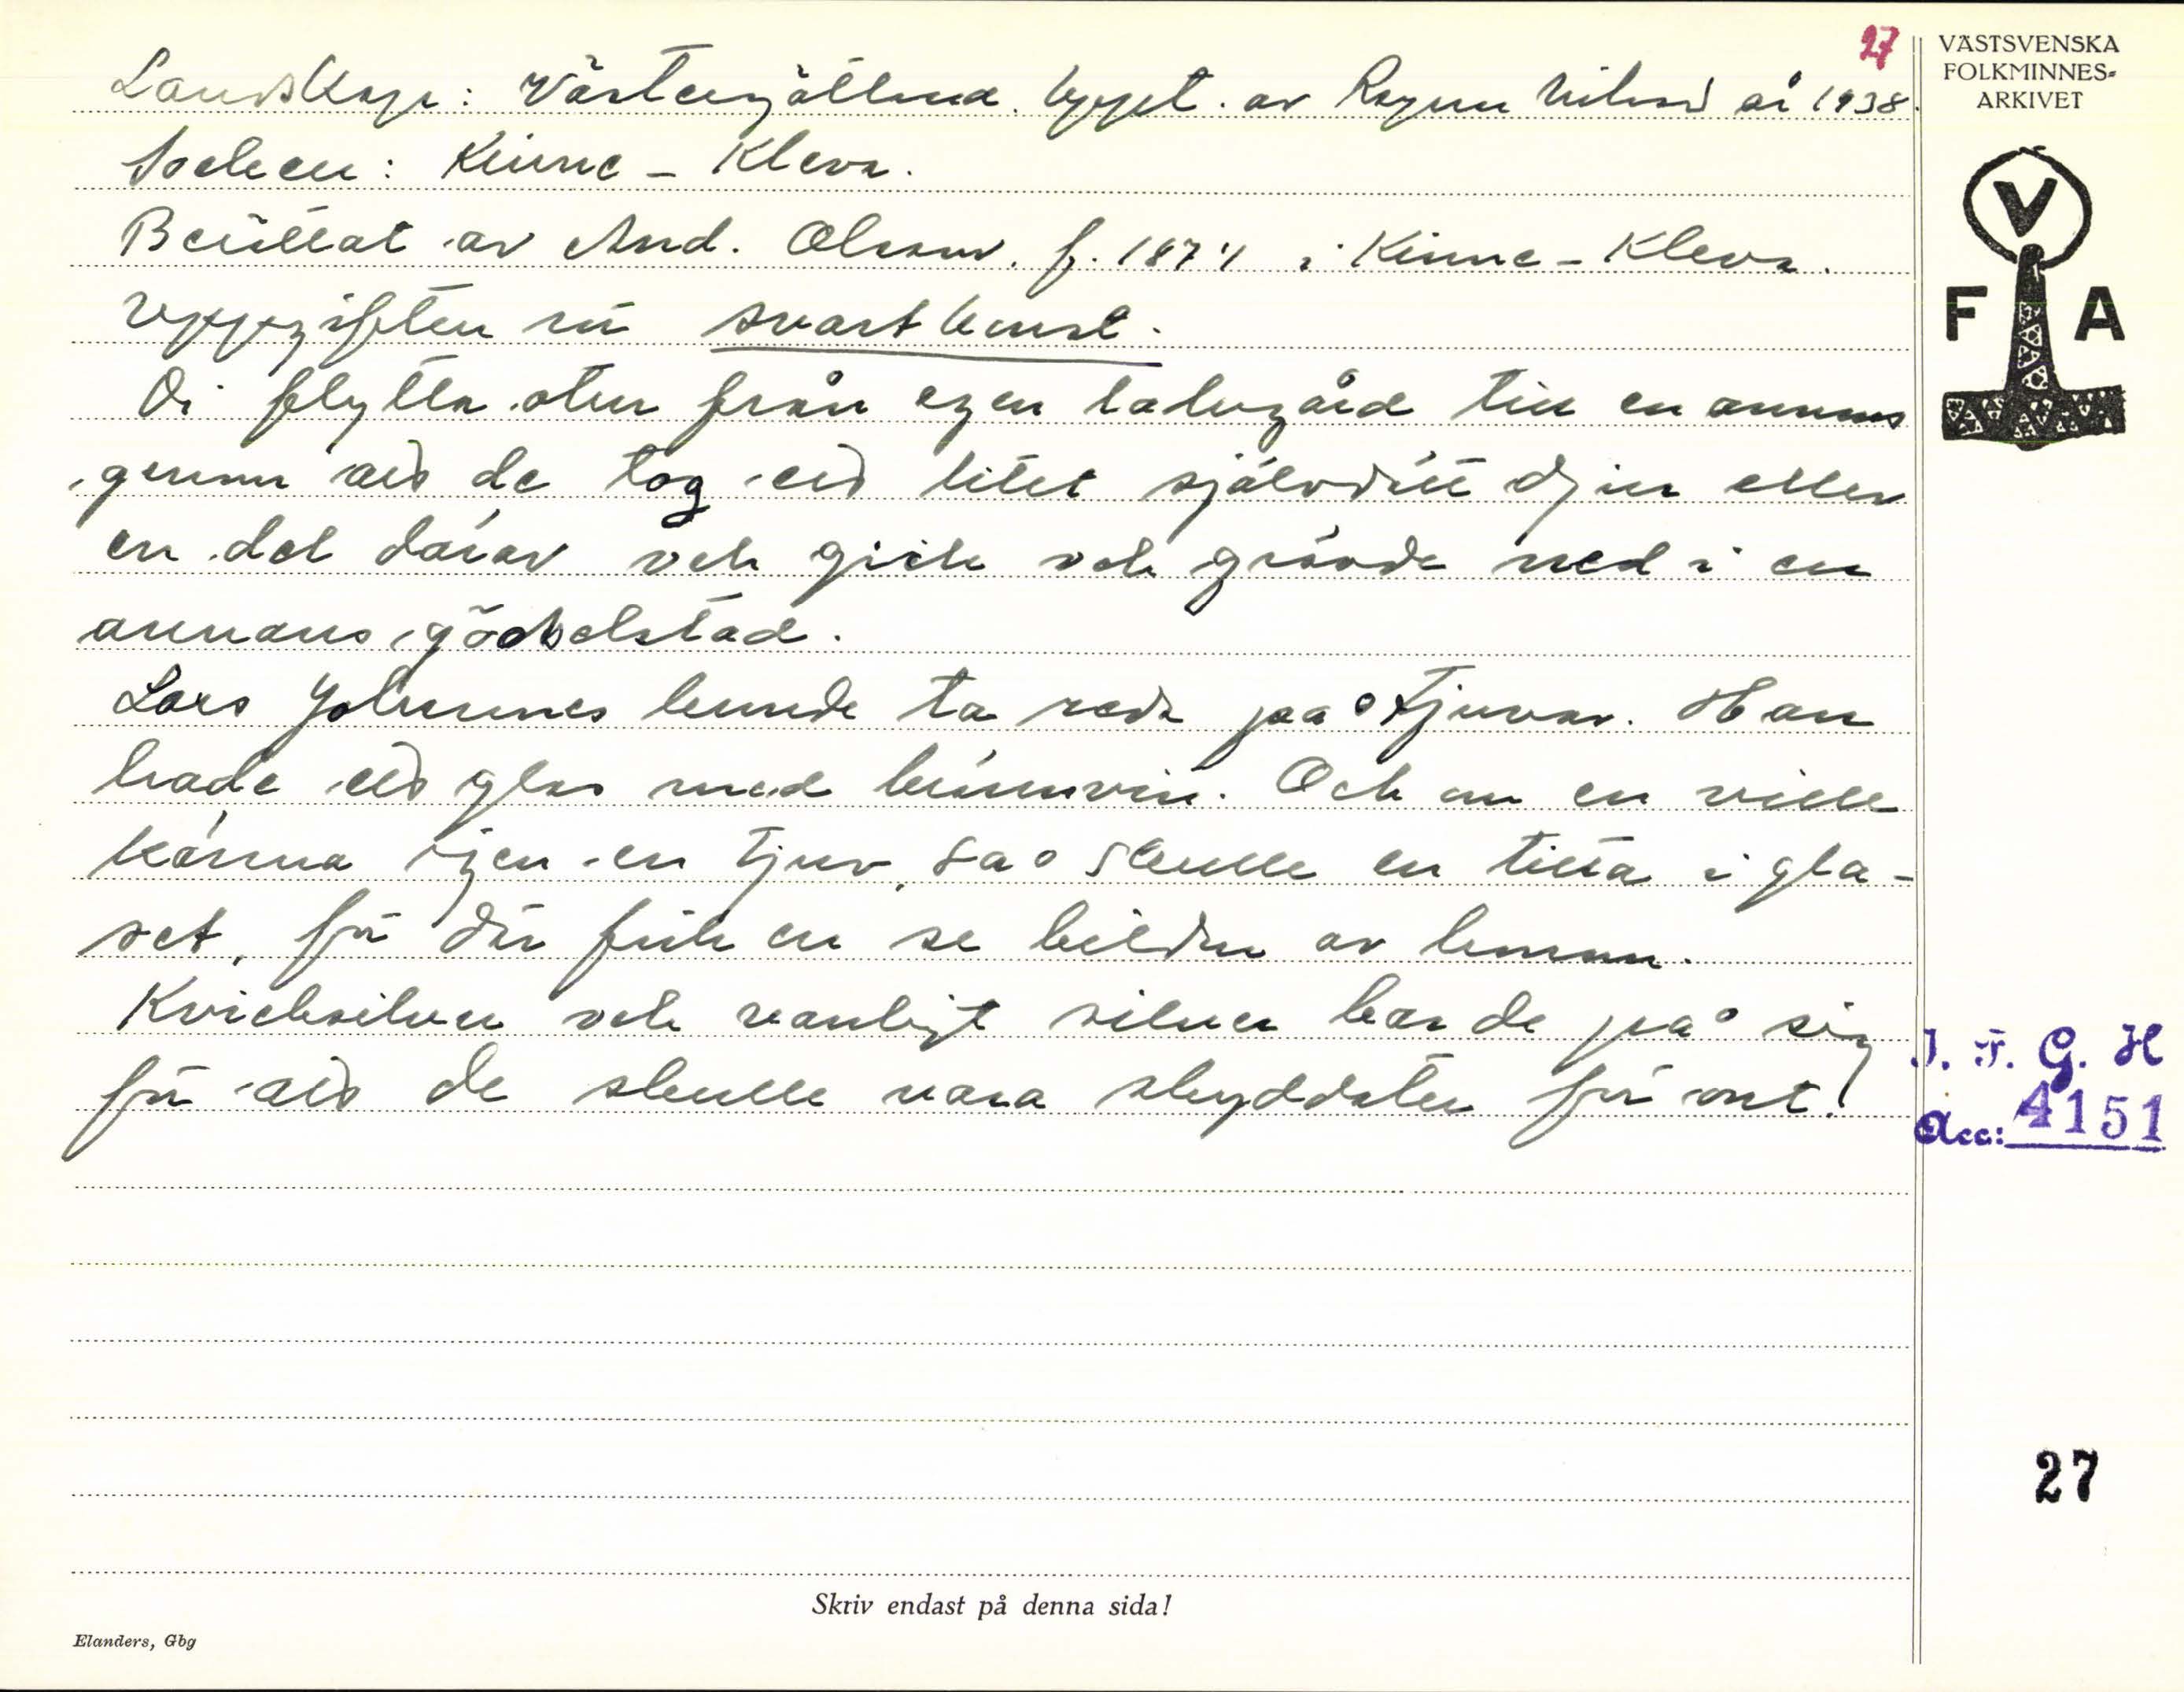 27
Landskap: Västergötland. Uppt. av Ragnar Nilsson år 1938.
Socken: Kinne-Kleva.
Berättat av And. Olsson. f. 1874 i Kinne-Kleva.
Uppgiften rör svartkonst.
Di flytta otur från egen ladugård till en annans
genom att de tog ett litet självdött djur eller
en del därav och gick och grävde ned i en
annans gödselstad.
Lars Johannes kunde ta reda på tjuvar. Han
hade ett glas med brännvin. Och om en ville
känna igen en tjuv, så skulle en titta i gla-
set, för där fick en se bilden av honom.
Kvicksilver och vanligt silver bar de på sig
för att de skulle vara skyddade för ont!
VÄSTSVENSKA
FOLKMINNES-
ARKIVET
V
F A
I. F. G. H
Acc: 4151
27
Skriv endast på denna sida!
Elanders, Gbg